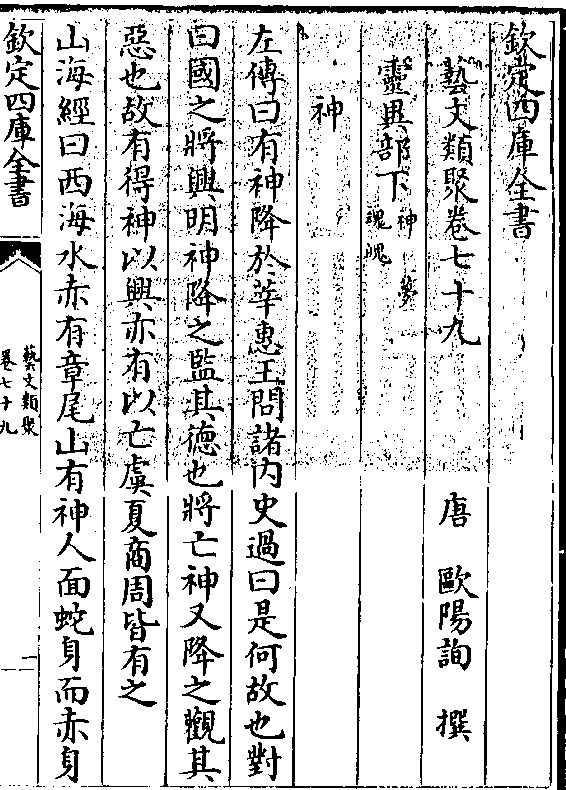 欽定四庫全書
藝文類聚卷七十九
唐 歐陽詢 撰
靈異部下 神 夢 魂魄
神
左傳曰有神降於莘惠王問諸内史過曰是何故也對
曰國之將興明神降之監其德也將亡神又降之觀其
惡也故有得神以興亦有以亡虞夏商周皆有之
山海經曰西海水亦有章尾山有神人面蛇身而赤身
欽定四庫全書
藝文類聚
卷七十九
一